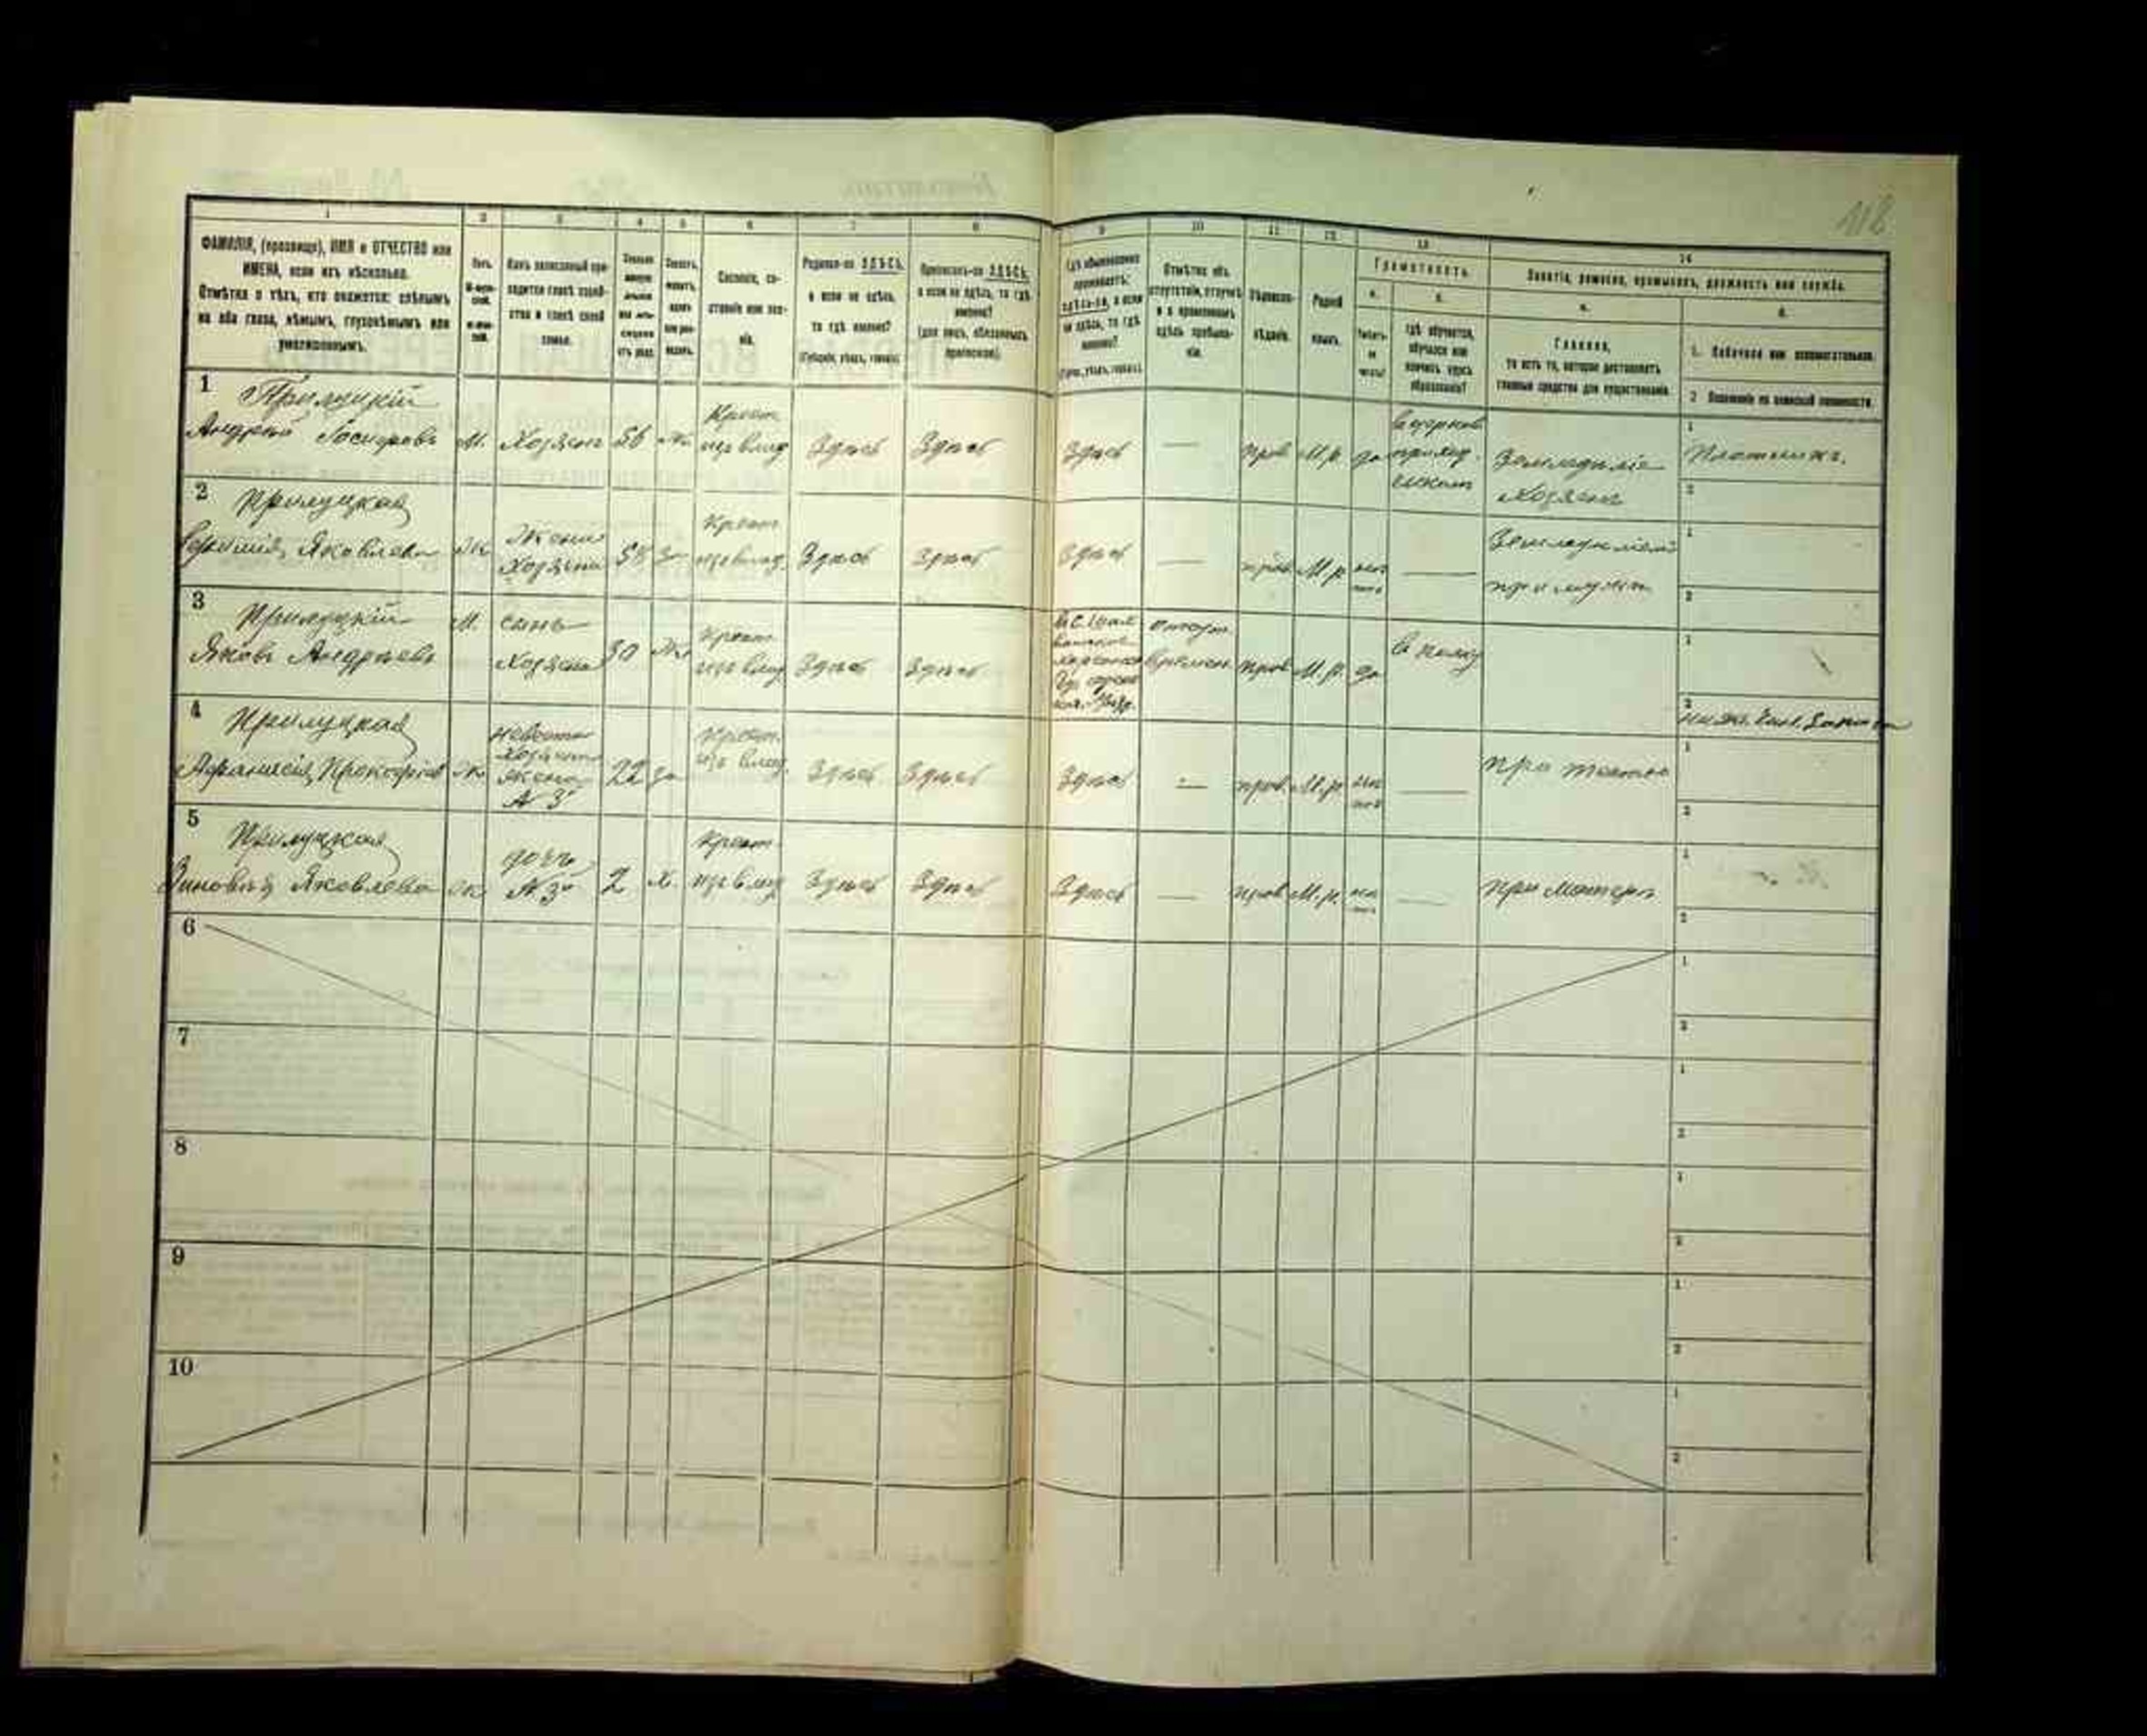 118
1 2 3 4 5 6 7 8 9 10 11 12 13 14
ФАМИЛІЯ, (прозвище), ИМЯ и ОТЧЕСТВО или
ИМЕНА, если ихъ нѣсколько.
Отмѣтка о тѣхъ, кто окажется: слѣпымъ
на оба глаза, нѣмымъ, глухонѣмымъ или
умалишеннымъ.
Полъ.
Какъ записанный при-
ходится главѣ хозяй-
ства и главѣ своей
семьи.
Сословіе, со-
стояніе или зва-
ніе.
Родился-ли ЗДѢСЬ,
а если не здѣсь,
то гдѣ именно?
(Губернія, уѣздъ, городъ)
Приписанъ-ли ЗДѢСЬ,
а если не здѣсь, то гдѣ
именно?
(для лицъ, обязанныхъ
припискою).
Гдѣ обыкновенно
проживаетъ:
здѣсь-ли, а если
не здѣсь, то гдѣ
именно?
Отмѣтка объ
отсутствіи, отлучкѣ
и о временномъ
здѣсь пребыва-
ніи.
Вѣроиспо-
вѣданіе.
Родной
языкъ.
Грамотность.
а. б.
Умѣетъ-
ли
читать?
гдѣ обучается,
обучался или
кончилъ курсъ
образованія?
Занятіе, ремесло, промыселъ, должность или служба.
а. б.
Главное,
то есть то, которое доставляетъ
главныя средства для существованія.
1. Побочное или вспомогательное.
2. Положеніе по воинской повинности.
1 Прилуцкій
Андрей Госифовъ М. Хозяинъ 56 Крест. изъ влад. Здѣсь Здѣсь Здѣсь — прав М.р. да Земледѣліе Хозяинъ 1 Плотникъ.
2
2 Прилуцкая
Яковлева ж Жена Хозяина 58 з Крест. изъ влад. Здѣсь Здѣсь Здѣсь — прав М.р. — Земледѣліе при мужѣ 1
2
3 Прилуцкій
Яковъ Андреевъ М. сынъ Хозяина 30 Крест. изъ влад Здѣсь Здѣсь времен. прав М.р. да въ полку 1
2
4 Прилуцкая
Прокофіева ж невѣстка Хозяина жена №3го 22 з Крест. изъ влад. Здѣсь Здѣсь Здѣсь — прав. М.р — при 1
2
5 Прилуцкая
Зиновія Яковлева ж дочь №3го 2 Х. Крест. изъ влад Здѣсь Здѣсь Здѣсь — прав М.р. — при Матери 1
2
6 1
2
7 1
2
8 1
2
9 1
2
10 1
2